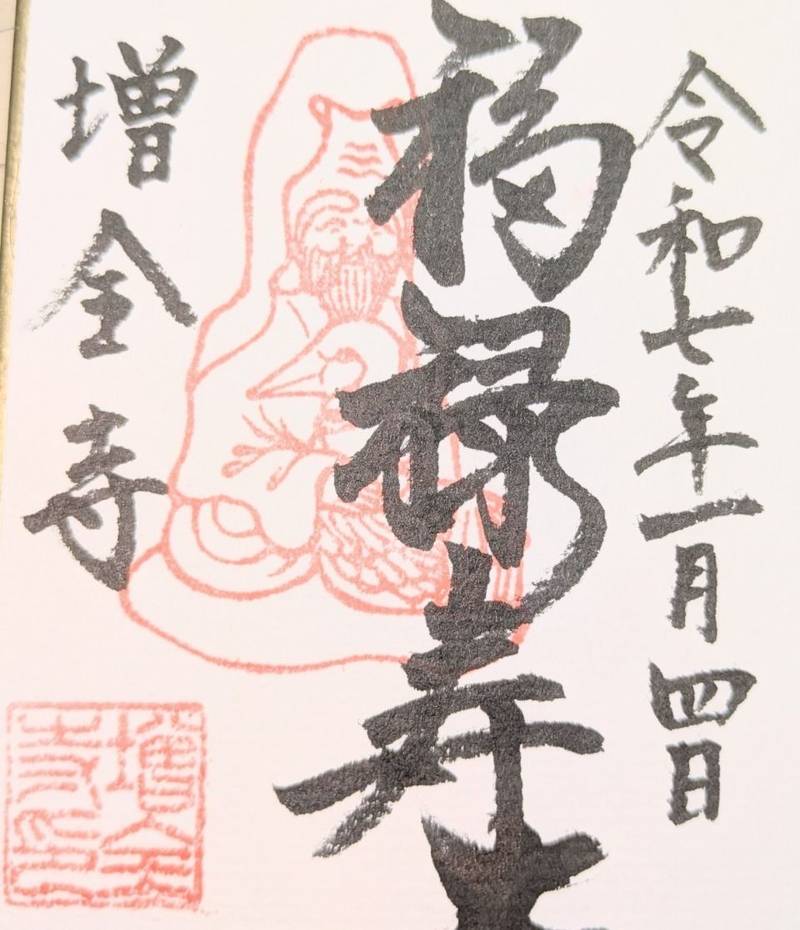 令和七年一月四日
福禄寿
増全寺
増全
寺印